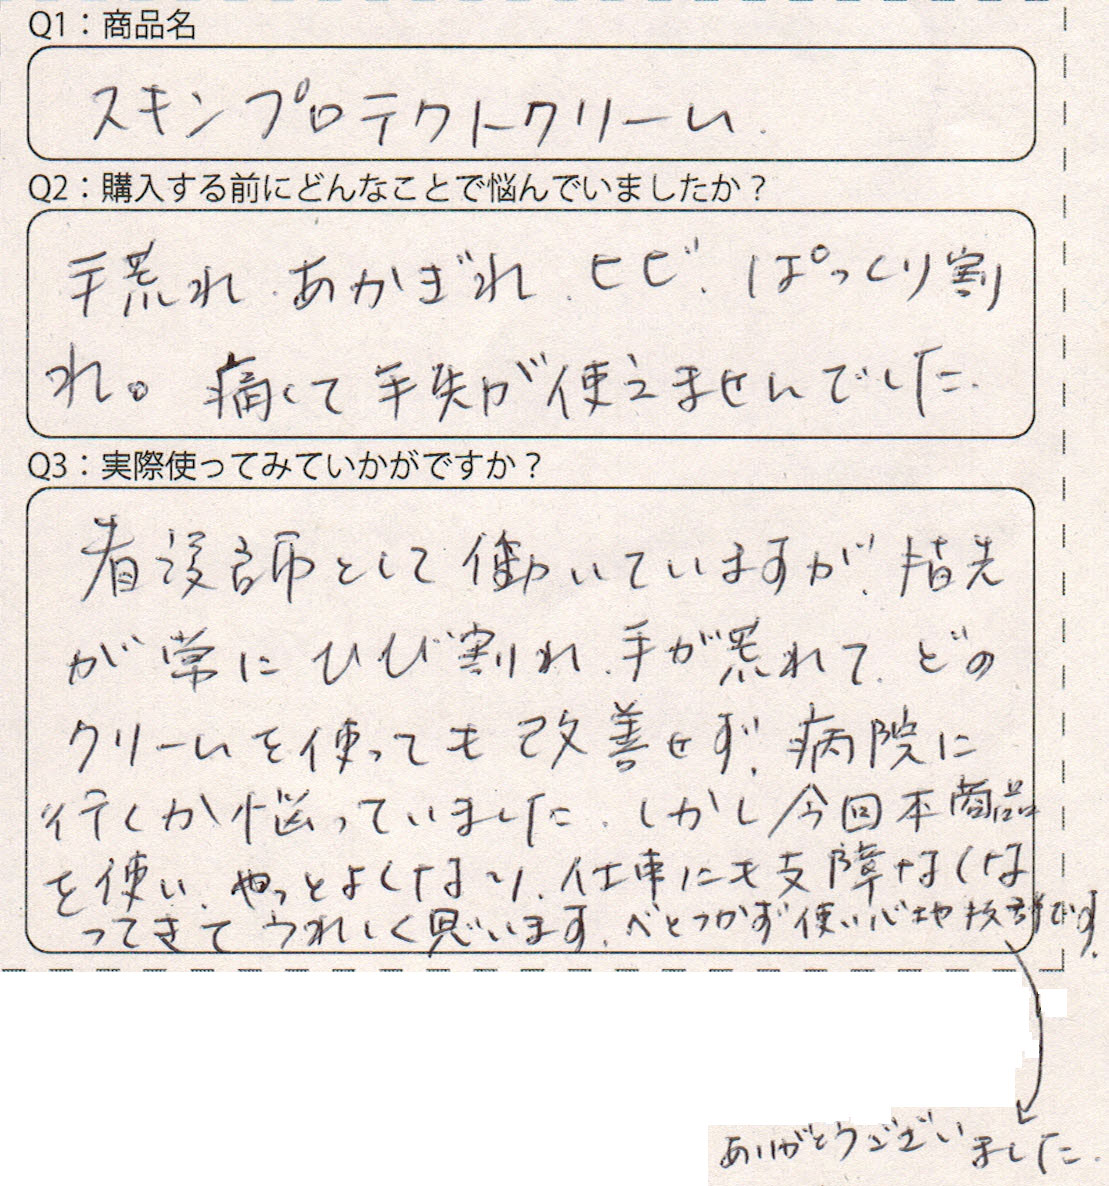 Q1：商品名
スキンプロテクトクリーム.
Q2：購入する前にどんなことで悩んでいましたか？
手荒れ.あかぎれ.ヒビ.ぱっくり割
れ。痛くて手先が使えませんでした.
Q3：実際使ってみていかがですか？
看護師として働いていますが.指先
が常にひび割れ.手が荒れて.どの
クリームを使っても改善せず.病院に
行くか悩っていました.しかし今回本商品
を使い.やっとよくなり.仕事にも支障なくな
ってきてうれしく思います.べとつかず使い心地抜群です.
ありがとうございました.